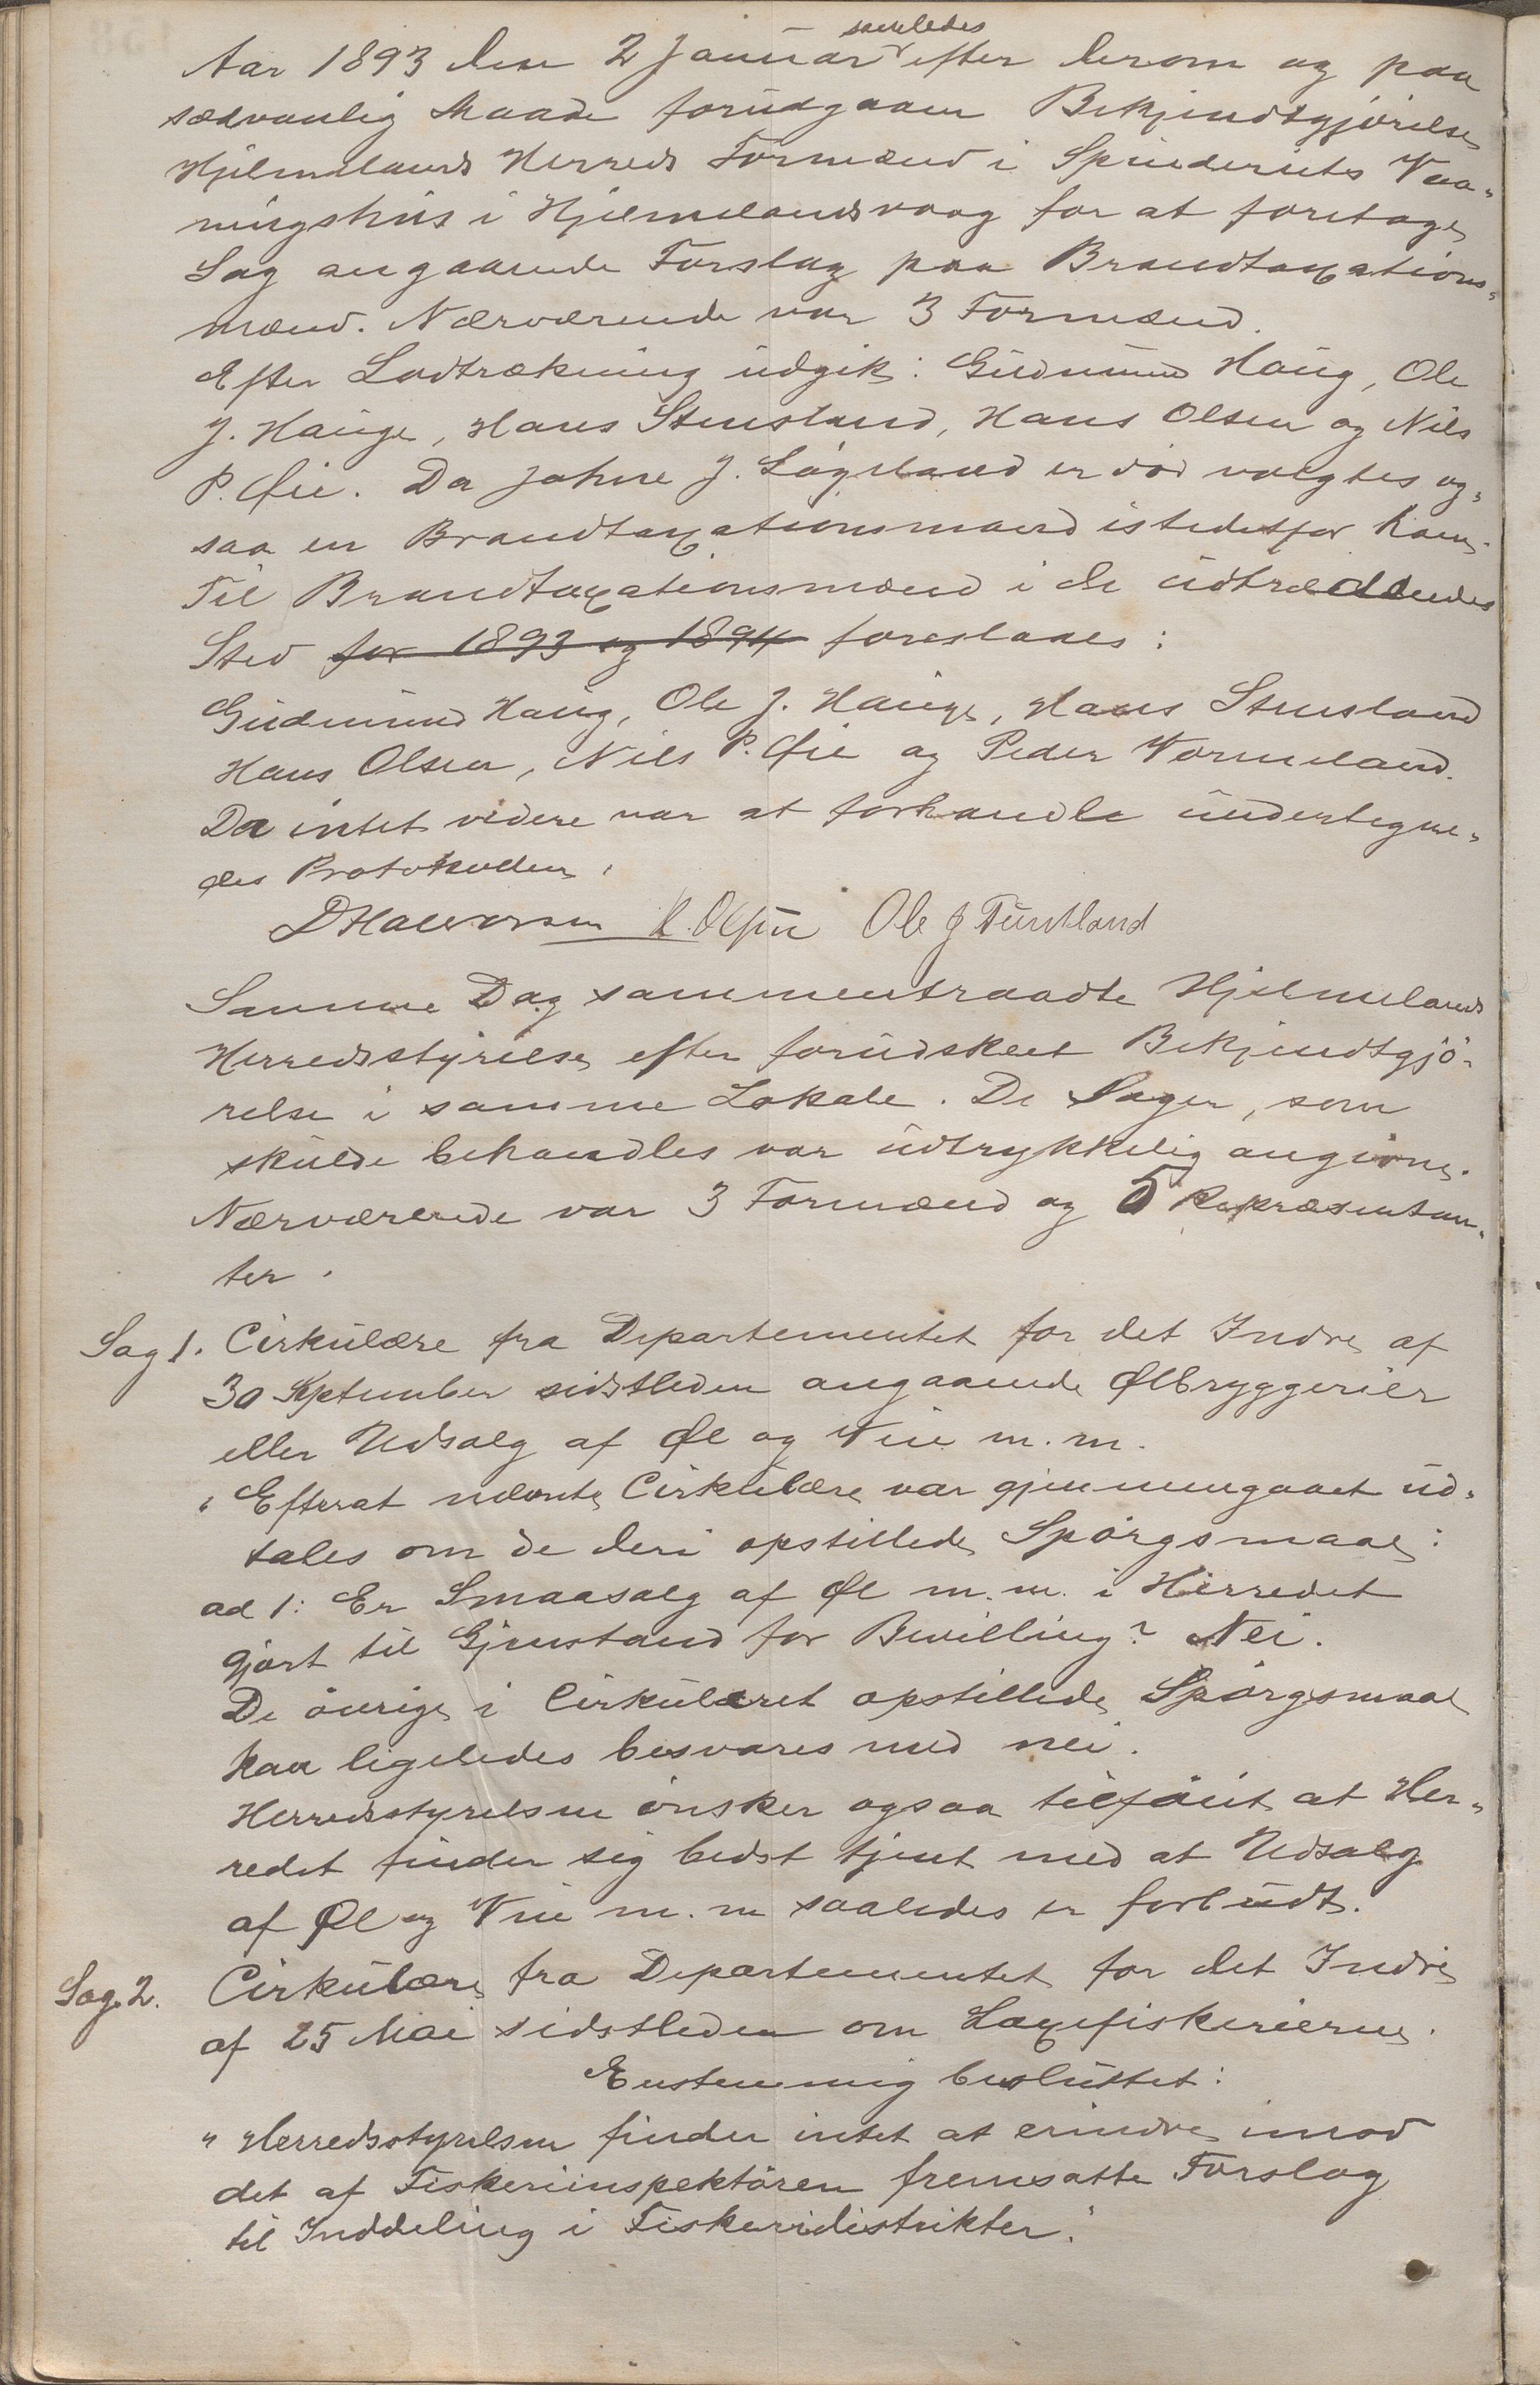 Aar 1893 den 2 Januar samledes efter derom og paa
sædvanlig Maade forudgaaen Bekjendtgjörelse
Hjelmelands Herreds Formænd i Spinderiets Vaa-
ningshus i Hjelmelandsvaag for at foretage
Sag angaaende Forslag paa Brandtaxations-
mænd. Nærværende var 3 Formænd.
Efter Lodtrækning udgik: Gudmund Haug, Ole
J. Hauge, Hans Stensland, Hans Olsen og Nils
P. Øie. Da Johne J. Lögeland er död valgtes og-
saa en Brandtaxationsmand istedetfor ham.
Til Brandtaxationsmænd i de udtrædendes
Sted for 1893 og 1894 foreslaaes:
Gudmund Haug, Ole J. Hauge, Hans Stensland
Hans Olsen, Nils P. Øie og Peder Vormeland.
Da intet videre var at forhandle undertegne-
des Protokollen.
D Halvorsen H. Olsen Ole J Tuntland
Samme Dag sammentraadte Hjelmelands
Herredsstyrelse efter forudskeet Bekjendtgjö-
relse i samme Lokale. De Sager, som
skulde behandles var udtrykkelig angivne.
Nærværende var 3 Formænd og 5 Repræsentan-
ter.
Sag 1. Cirkulære fra Departementet for det Indre af
30 September sidstleden angaaende Ølbryggerier
eller Udsalg af Øl og Vin m. m.
"Efterat nævnte Cirkulære var gjennemgaaet ud-
tales om de deri opstillede Spörgsmaal:
ad 1: Er Smaasalg af Øl m. m. i Herredet
gjort til Gjenstand for Bevilling? Nei.
De övrige i Cirkulæret opstillede Spörgsmaal
kan ligeledes besvares med nei.
Herredsstyrelsen önsker ogsaa tilföiet at Her-
redet finder sig bedst tjent med at Udsalg
af Øl og Vin m. m saaledes er forbudt.
Sag 2. Cirkulære fra Departementet for det Indre
af 25 Mai sidstleden om Laxefiskerierne.
Enstemmig besluttet:
"Herredsstyrelsen finder intet at erindre imod
det af Fiskeriinspektören fremsatte Forslag
til Inddeling i Fiskeridistrikter."